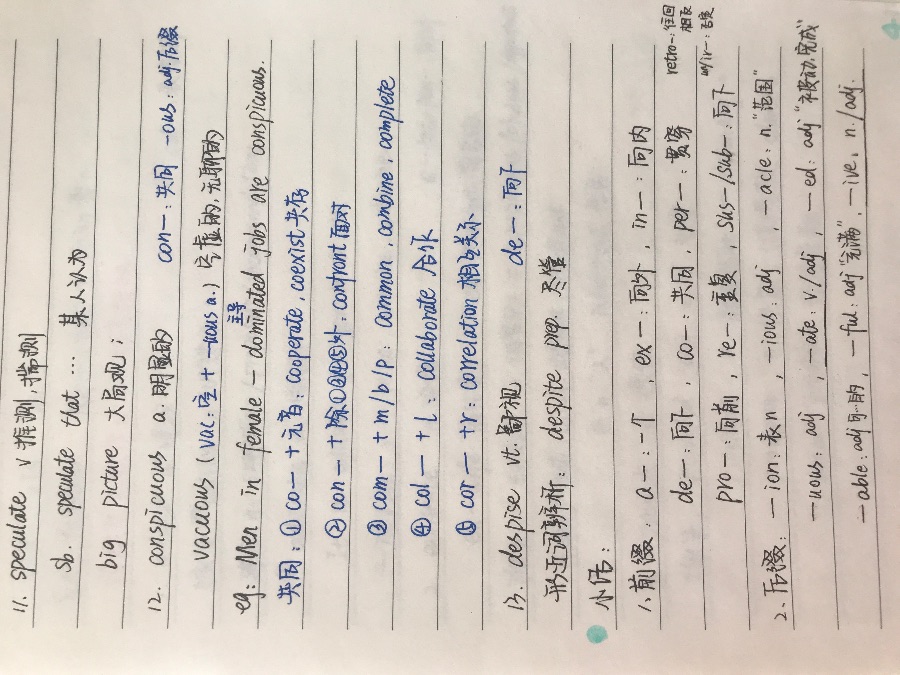 11. speculate v 推测,揣测
sb. speculate that ... 某人认为
big picture 大局观;
12. conspicuous a. 明显的 con-: 共同 -ous: adj.后缀
vacuous (vac: 空 + -uous a.) 空虚的,无聊的
主导
eg: Men in female-dominated jobs are conspicuous.
共同: ① co- + 元音: cooperate, coexist 共存
② con- + 除①③④⑤外: confront 面对
③ com- + m/b/p: common, combine, complete
④ col- + l: collaborate 合作
⑤ cor- + r: correlation 相互关系
13. despise vt. 鄙视 de-: 向下
形近词辨析: despite prep. 尽管
小结:
1、前缀: a-: 一个, ex-: 向外, in-: 向内
retro-: 往回 相反
de-: 向下, co-: 共同, per-: 贯穿
in/ir-: 否定
pro-: 向前, re-: 重复, sus-/sub-: 向下
2、后缀: -ion: 表n, -ious: adj, -acle: n. "范围"
-uous: adj, -ate: v/adj, -ed: adj "被动,完成"
-able: adj 可...的, -ful: adj "充满", -ive. n./adj.